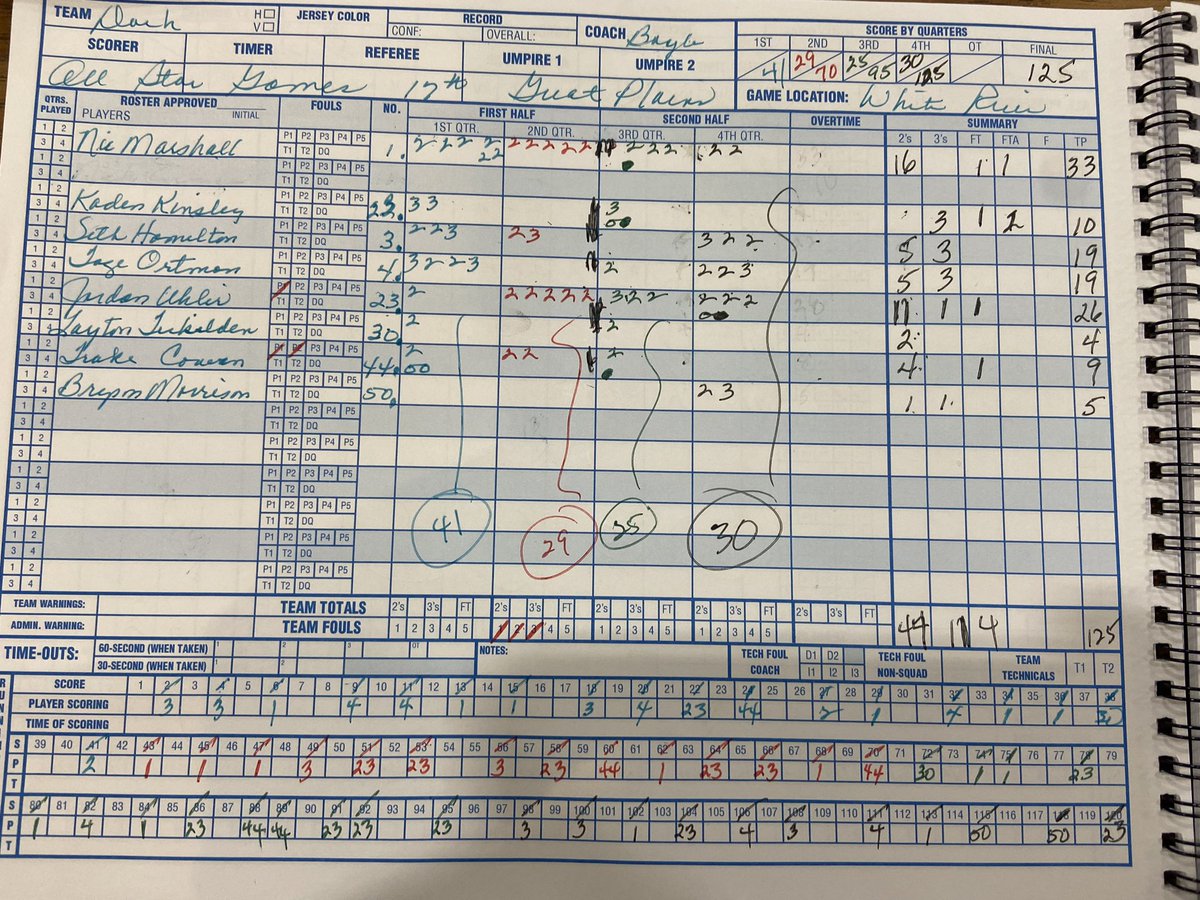 TEAM Dark H V JERSEY COLOR RECORD CONF: OVERALL: COACH Bayle SCORE BY QUARTERS
1ST 2ND 3RD 4TH OT FINAL
SCORER TIMER REFEREE UMPIRE 1 UMPIRE 2 41 29/70 25/95 30/125 125
All Star Games 17th Great Plains GAME LOCATION: White River
QTRS. PLAYED ROSTER APPROVED INITIAL PLAYERS FOULS NO. FIRST HALF SECOND HALF OVERTIME SUMMARY
1ST QTR. 2ND QTR. 3RD QTR. 4TH QTR. 2's 3's FT FTA F TP
Nic Marshall 1. 2 2 2 2 22 2 2 2 2 2 2 2 2 2 2 16 1 1 33
Kaden Kinsley 22. 3 3 3 3 1 2 10
Seth Hamilton 3. 2 2 3 2 3 3 2 2 5 3 19
Tage Ortman 4. 3 2 2 3 2 2 2 3 5 3 19
Jordan Uhlir 23. 2 2 2 2 2 2 3 2 2 2 2 2 11 1 1 26
Layton 30. 2 2 2 4
Cowan 44. 2 2 2 2 4 1 9
Morrison 50. 2 3 1 1 5
41 29 25 30
TEAM WARNINGS: TEAM TOTALS 2's 3's FT 2's 3's FT 2's 3's FT 2's 3's FT 2's 3's FT
ADMIN. WARNING: TEAM FOULS 1 2 3 4 5 1 2 3 4 5 1 2 3 4 5 1 2 3 4 5 44 11 4 125
TIME-OUTS: 60-SECOND (WHEN TAKEN) 30-SECOND (WHEN TAKEN) NOTES: TECH FOUL COACH D1 D2 I1 I2 I3 TECH FOUL NON-SQUAD TEAM TECHNICALS T1 T2
SCORE 1 2 3 4 5 6 7 8 9 10 11 12 13 14 15 16 17 18 19 20 21 22 23 24 25 26 27 28 29 30 31 32 33 34 35 36 37 38
PLAYER SCORING 3 3 1 4 4 1 1 3 4 23 44 2 1 4 1 1 30
TIME OF SCORING
S 39 40 41 42 43 44 45 46 47 48 49 50 51 52 53 54 55 56 57 58 59 60 61 62 63 64 65 66 67 68 69 70 71 72 73 74 75 76 77 78 79
P 2 1 1 1 3 23 23 3 23 44 1 23 23 1 44 30 1 1 23
T
S 80 81 82 83 84 85 86 87 88 89 90 91 92 93 94 95 96 97 98 99 100 101 102 103 104 105 106 107 108 109 110 111 112 113 114 115 116 117 118 119 120
P 1 4 1 23 44 44 23 23 23 3 3 1 23 4 3 4 1 50 50 23
T